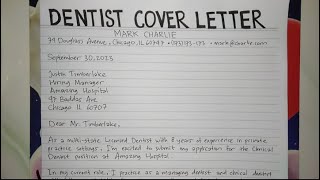 DENTIST COVER LETTER
MARK CHARLIE
Avenue, Chicago, IL 60747 •
September 30, 2023
Justin Timberlake
Hiring Manager
Amazing Hospital
Ave
Chicago, IL 60707
Dear Mr. Timberlake,
As a multi-state licensed Dentist with 8 years of experience in private
practice settings, I'm excited to submit my application for the Clinical
Dentist position at Amazing Hospital.
In my current role, I practice as a managing dentist and clinical dentist